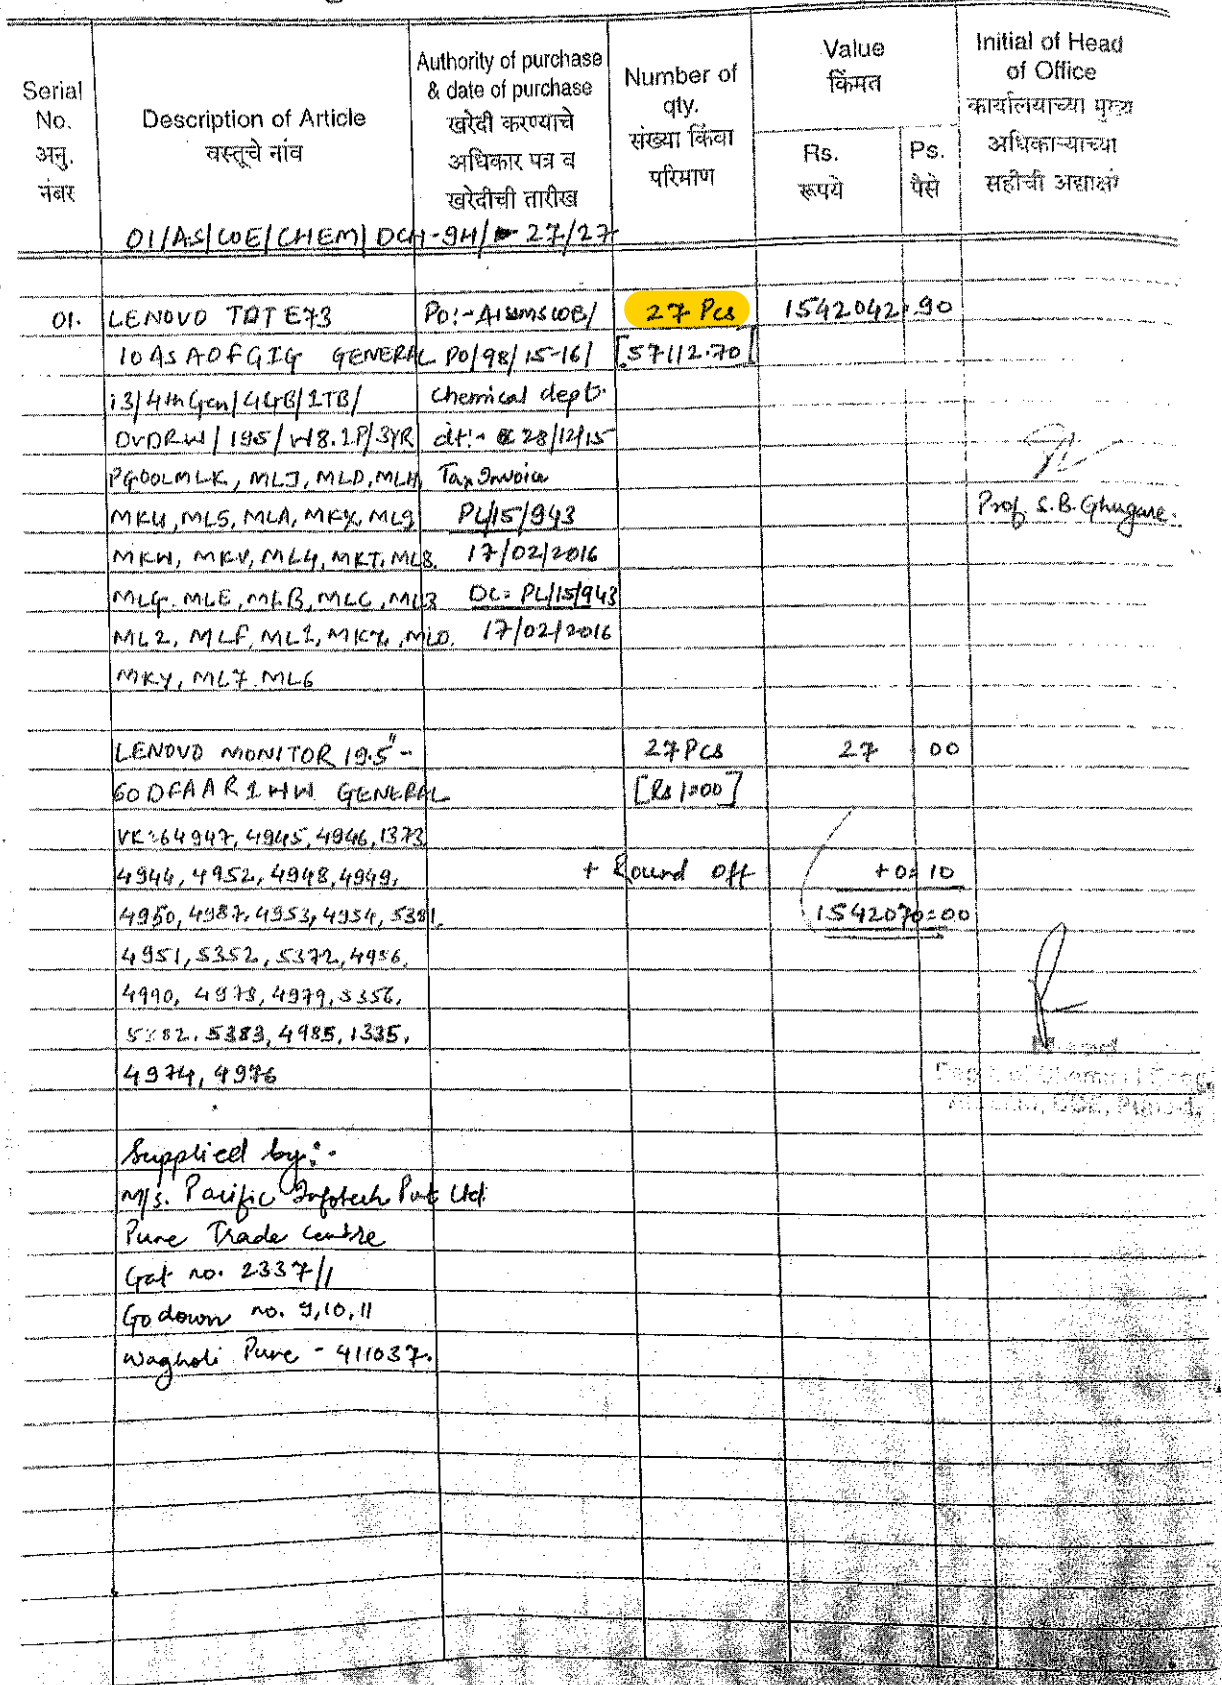 Serial No. अनु. नंबर
Description of Article वस्तूचे नांव
Authority of purchase & date of purchase खरेदी करण्याचे अधिकार पत्र व खरेदीची तारीख
Number of qty. संख्या किंवा परिमाण
Value किंमत
Rs. रूपये
Ps. पैसे
Initial of Head of Office कार्यालयाच्या मुख्य अधिकाऱ्याच्या सहीची अद्याक्षरे
01/AS/COE/CHEM/DCH-94/ 27/27
01. LENOVO TDT E73 PO:-AISSMSCOE/ 27 Pcs 1542042.90
10ASA0FGIG GENERAL PO/98/15-16/ [57112.70]
i3/4th Gen/4GB/1TB/ Chemical dept.
DVDRW/195/W8.1P/3YR dt:- 28/12/15
PG00LMLK, MLJ, MLD, MLH, Tax Invoice
MKU, ML5, MLA, MKX, ML9 PL/15/943 Prof. S.B. Ghugare.
MKW, MKV, ML4, MKT, ML8. 17/02/2016
MLG. MLE, MLB, MLC, ML3 DC: PL/15/943
ML2, MLF, ML1, MKZ, ML0. 17/02/2016
MKY, ML7. ML6
LENOVO MONITOR 19.5"- 27 Pcs 27 00
60DFAAR1WW GENERAL [Rs 1=00]
VK:64947, 4945, 4946, 1373,
4944, 4952, 4948, 4949, + Round off +0=10
4950, 4987, 4953, 4954, 5381, 1542070=00
4951, 5352, 5372, 4956,
4990, 4978, 4979, 5356,
5382, 5383, 4985, 1335,
4974, 4976
Head
Supplied by:-
M/s. Pacific Infotech Pvt Ltd.
Pune Trade Centre
Gat no. 2337/1
Godown no. 9,10,11
Wagholi Pune - 411037.